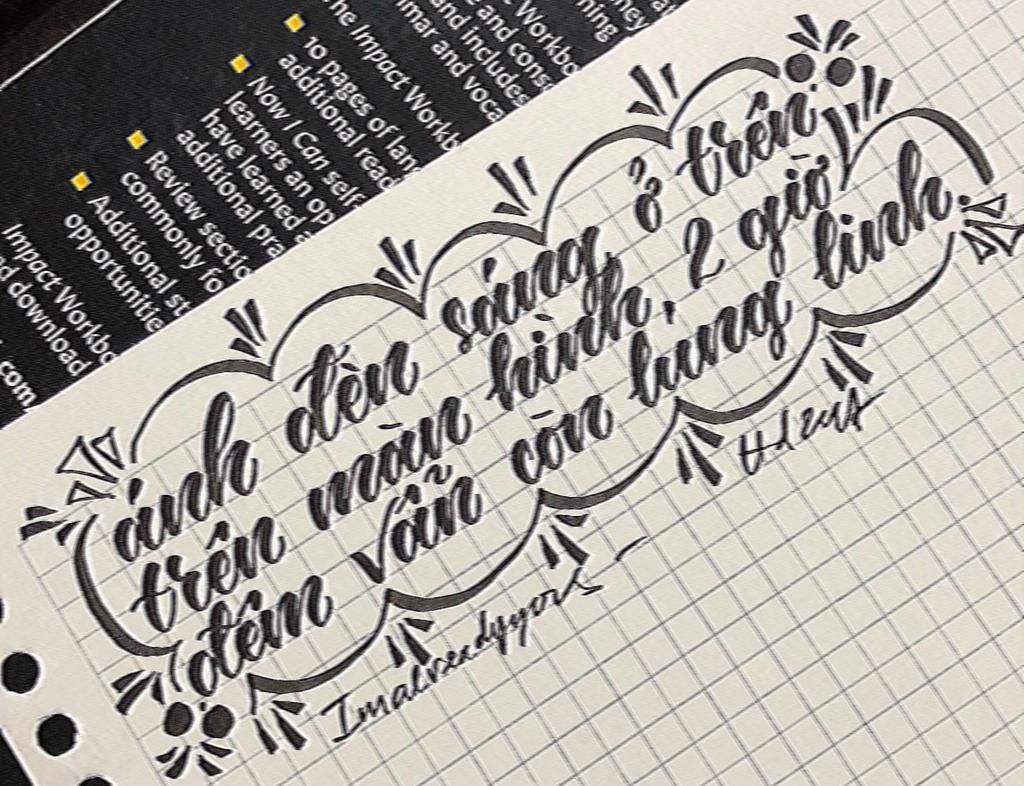 he Impact Workb
10 pages of lan
additional read
Now I Can self
learners an op
have learned
additional pra
Review sectio
commonly fo
Additional st
opportunitie
Impact Workbo
d download
com
mar and voca
and includes
Workbo
and cons
ánh đèn sáng ở trên
trên màn hình, 2 giờ
đêm vẫn còn lung linh.
Imalreadyyors